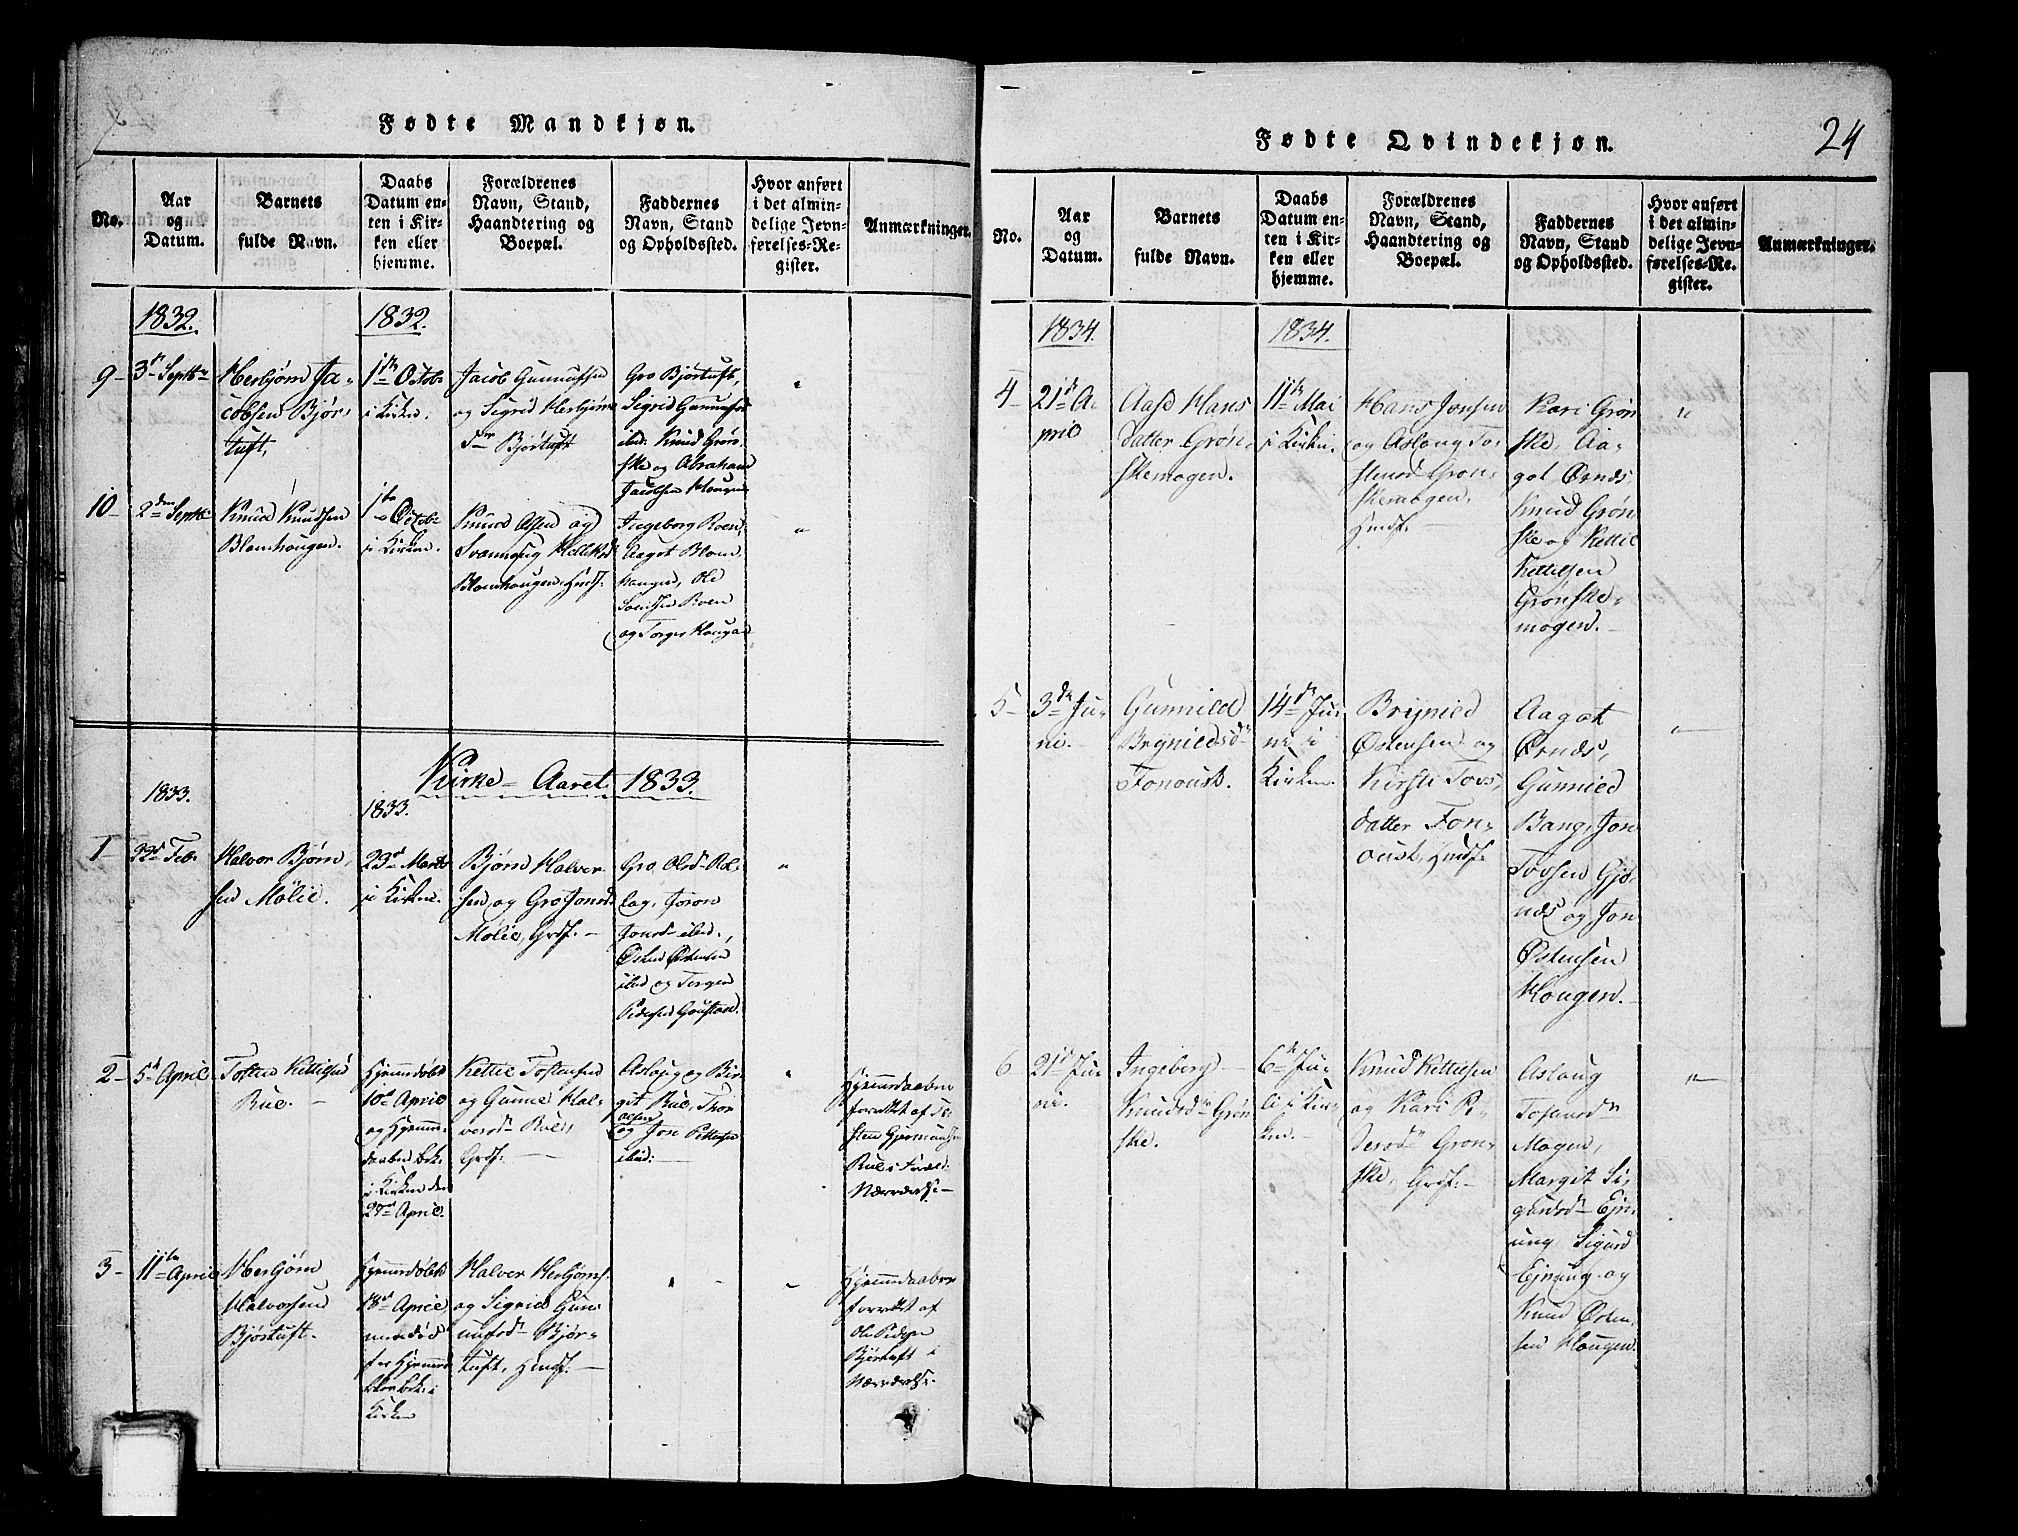 Fødte Mandkjøn.
No.
Aar
og
Datum.
Barnets
fulde Navn.
Daabs
Datum en-
ten i Kir-
ken eller
hjemme.
Forældrenes
Navn, Stand,
Haandtering og
Boepæl.
Faddernes
Navn, Stand
og Opholdssted.
Hvor anført
i det almin-
delige Jevn-
førelses-Re-
gister.
Anmærkninger.
1832.
1832.
9
3
Herbjørn Ja-
cobsen Bjør-
tuft,
1te Octob
i Kirken.
Jacob Gunnufsen
og Sigrid Herbjørns
dtr Bjørtuft
Gro Bjørtuft,
Sigrid
ibid. Knud Grøn-
ske og Abraham
Jacobsen Hougen
"
10
2den Septbr
Knud Knudsen
Blomhougen.
1te Octobr
i Kirken.
Knud Olsen og
Blomhougen, Hmdf.
Ingeborg Roen,
Aagot Blom-
hougen, Ole
Roen
og Torger Hougen
"
Kirke-Aaret 1833.
1833.
1833.
1
22d Febr
Halvor Bjørn-
sen Mølie.
23d Marts
i Kirken.
Bjørn Halver-
sen og Gro Jonsd.
Mølie, Grdf. -
Gro Olsd. Rol-
lag, Joron
Jonsd. ibid.,
Østensen
ibid og Torgen
Pedersen Goustad.
"
2
5d April
Tosten Kettilsen
Rue. -
Hjemmedøbt
10d April
og Hjemme-
daaben bek.
i Kirken den
27de April.
Kettil Tostensen
og Gunnel Hal-
versd. Rue,
Grdf. -
Aslaug og Bir-
git Rue, Thor
Olsen
og Jon Pettersen
ibid. -
"
Hjemmedaaben
forrettet af To-
sten Gjermundsen
Rue i Foræld.
Nærværelse -
3
11te April
Herbjørn
Halvorsen
Bjørtuft.
Hjemmedøbt
18d April,
Kirken
Halver Herbjørns.
og Sigrid Gun-
nufsd. Bjør-
tuft, Hmdf. -
"
"
Hjemmedaaben
forrettet af
Ole Peders
Bjørtuft i
Nærværelse.
24
Fødte Qvindekjøn.
No.
Aar
og
Datum.
Barnets
fulde Navn.
Daabs
Datum en-
ten i Kir-
ken eller
hjemme.
Forældrenes
Navn, Stand,
Haandtering og
Boepæl.
Faddernes
Navn, Stand
og Opholdssted.
Hvor anført
i det almin-
delige Jevn-
førelses-Re-
gister.
Anmærkninger.
1834.
1834.
4
21d A-
pril
Aase Hans
datter Grøn-
skemogen.
11te Mai
i Kirken.
Hans Jonsen
og Aslaug To-
stensd Grøn-
skemogen,
Hmdf. -
Kari Grøn-
ske, Aa-
got Ørnds,
Knud Grøn
ske og Kettil
Kettilsen
Grønske-
mogen. -
"
5
3de Ju-
ni. -
Gunnild
Brynildsdr
Fonoust.
14de Ju-
ni i
Kirken.
Brynild
Østensen og
Kirsti Tovs-
datter Fon-
oust, Hmdf.
Aagot
Ørnds,
Gunnild
Bang, Jon
Tovsen Gjø-
nds og Jon
Østensen
Hougen. -
"
6
21d Ju-
ni.
Ingeborg -
Knudsdr Grøn
ske.
6te Ju-
li i Kir-
ken. -
Knud Kettilsen
og Kari Pe-
dersdr Grøn-
ske, Grdf. -
Aslaug
Mogen,
Margit Si-
gurdsd. Ejn-
ung, Sigurd
Ejnung og
Knud Østen-
sen Hougen.
"